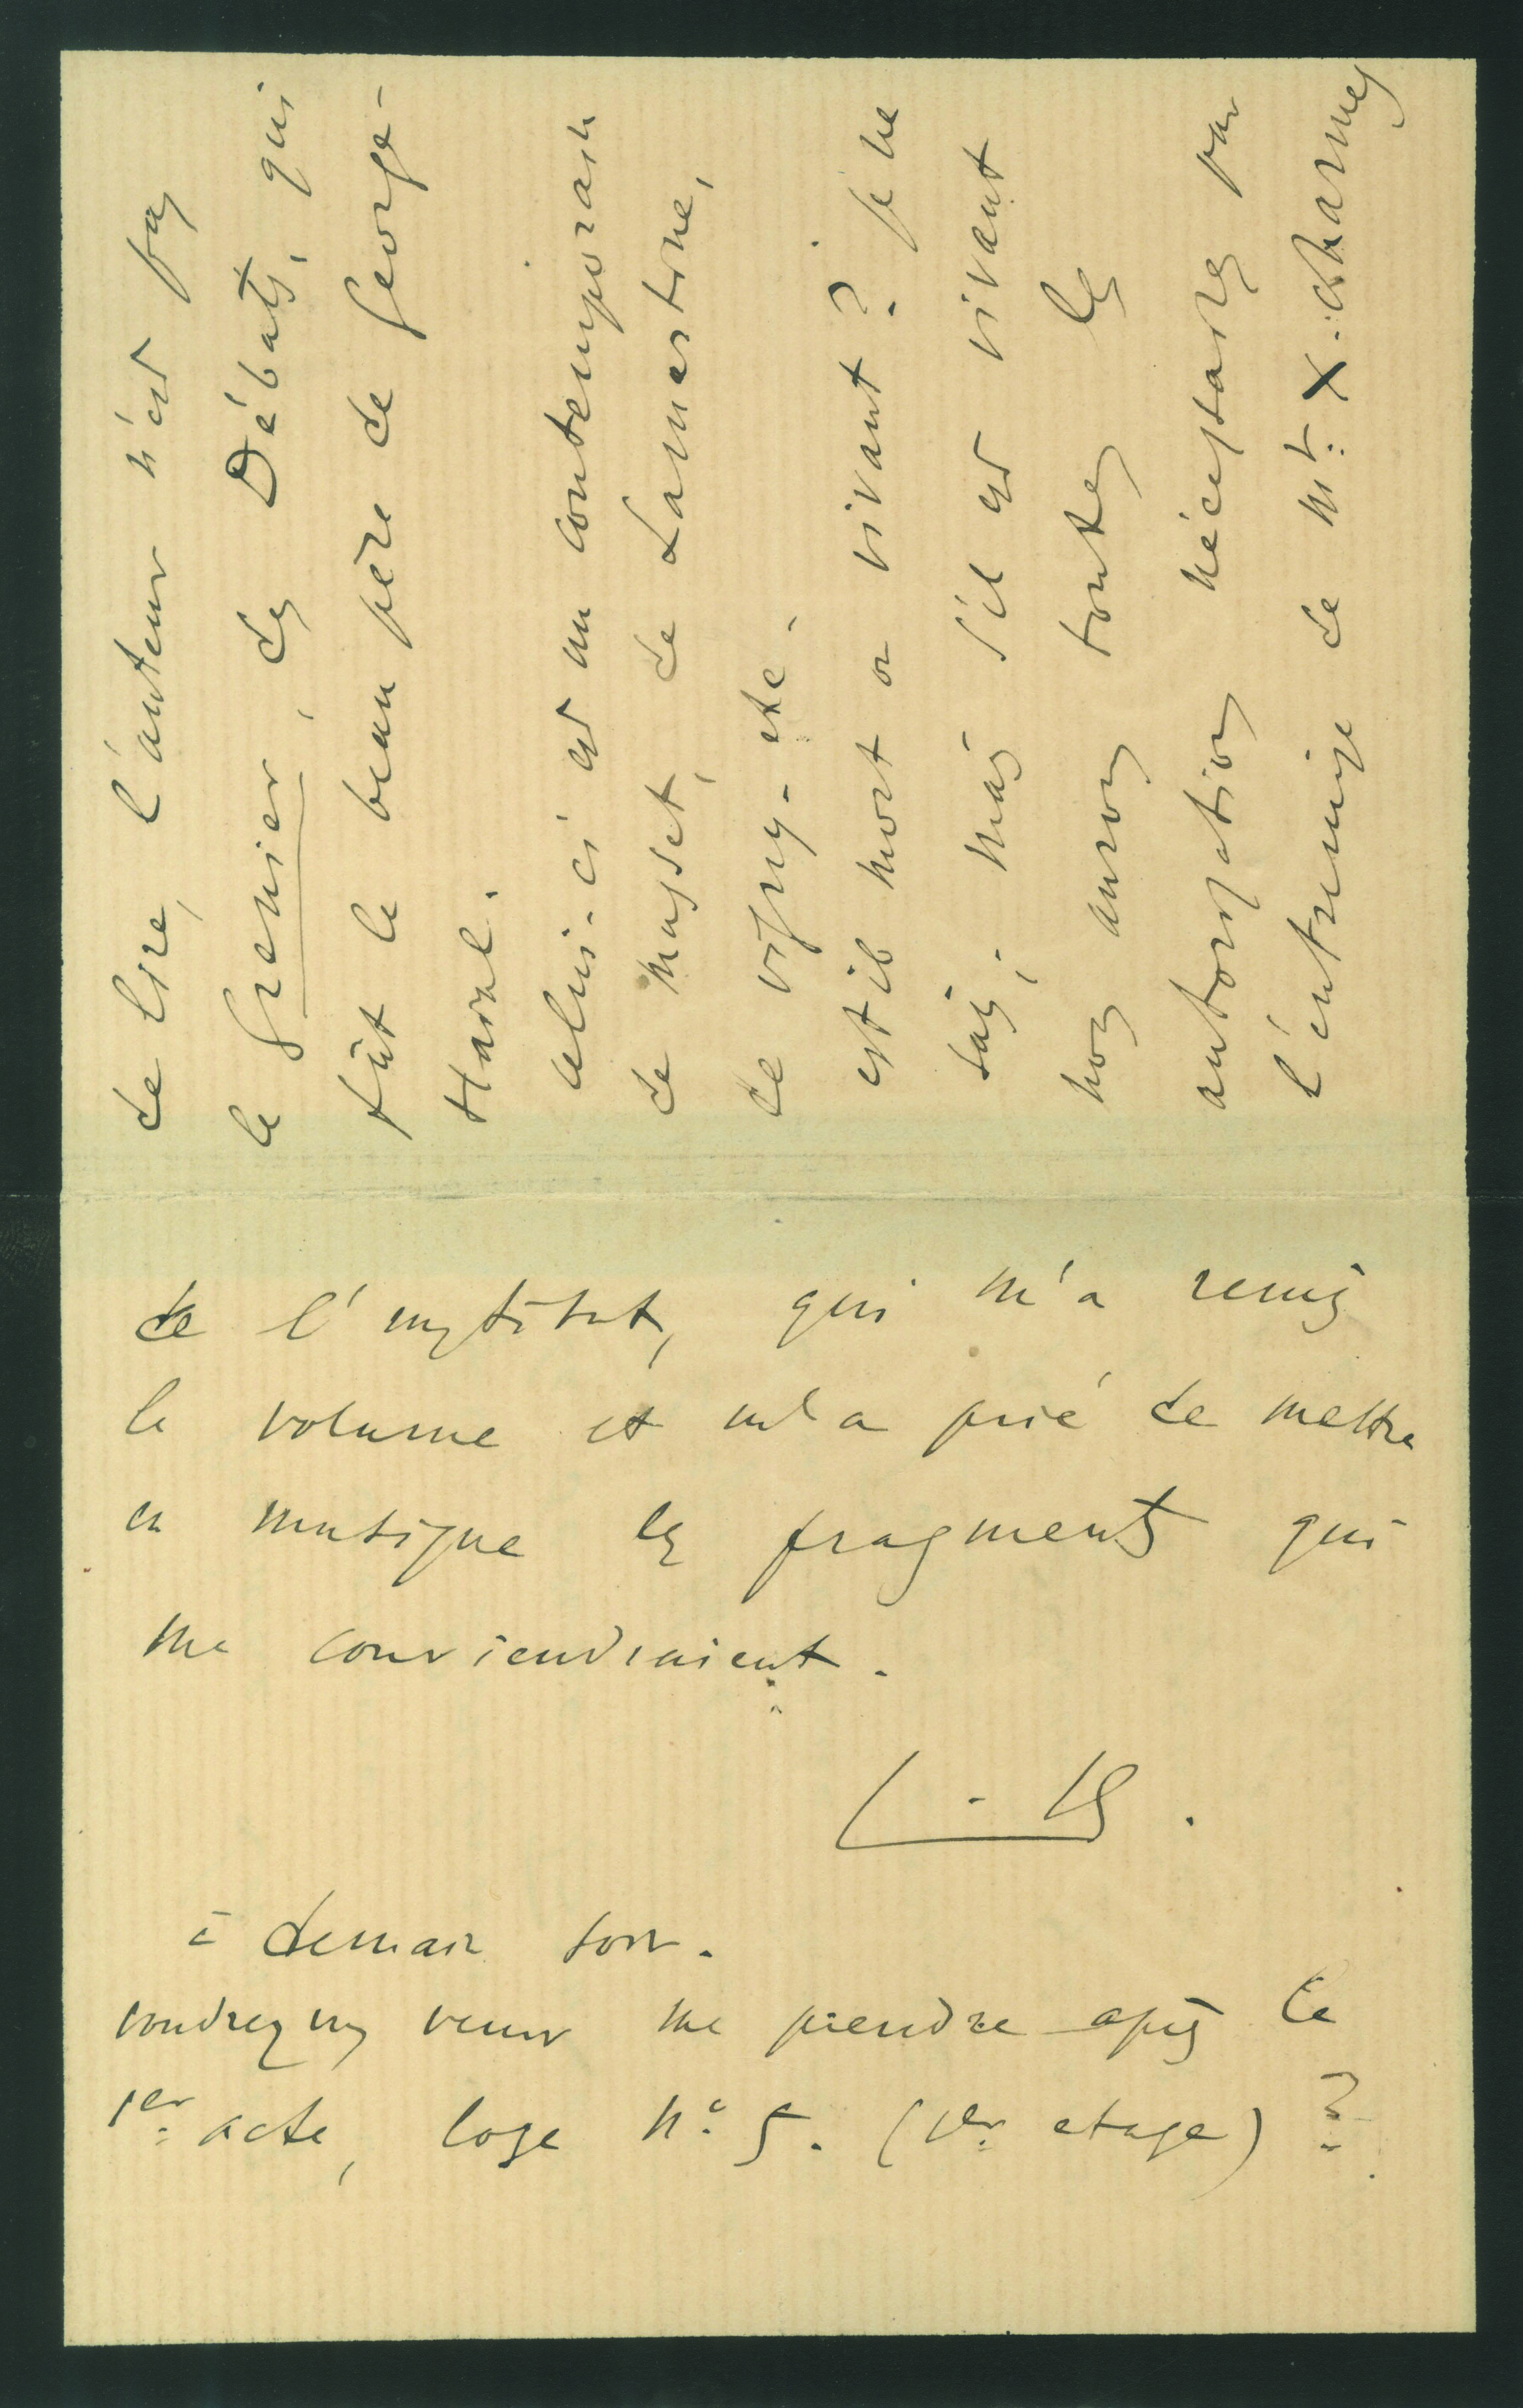 de lire, l'auteur n'est pas
le Grenier, des Débats, qui
fût le beau père de George-
Hainl.
celui-ci est un contemporain
de Musset, de Lamartine,
de Vigny - etc -
est il mort or vivant ? je ne
sais ; mais s'il est vivant
nous aurons toutes les
autorisations nécessaires par
l'entremise de Mr. X. Charmes
de l'institut, qui m'a remis
le volume et m'a prié de mettre
en musique les fragments qui
me conviendraient.
à demain soir.
voudrez vs venir me prendre après le
1er acte, loge No. 5. (1er etage) ?